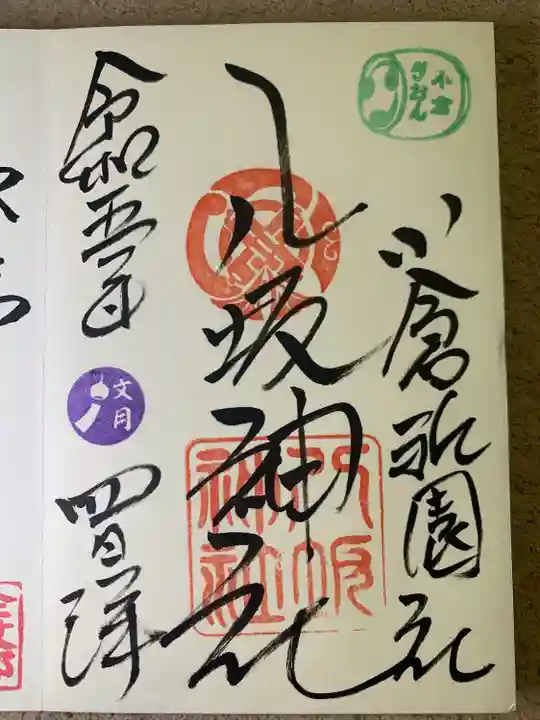 小倉祇園社
八坂神社
八坂神社
令和五年
文月
四日拝